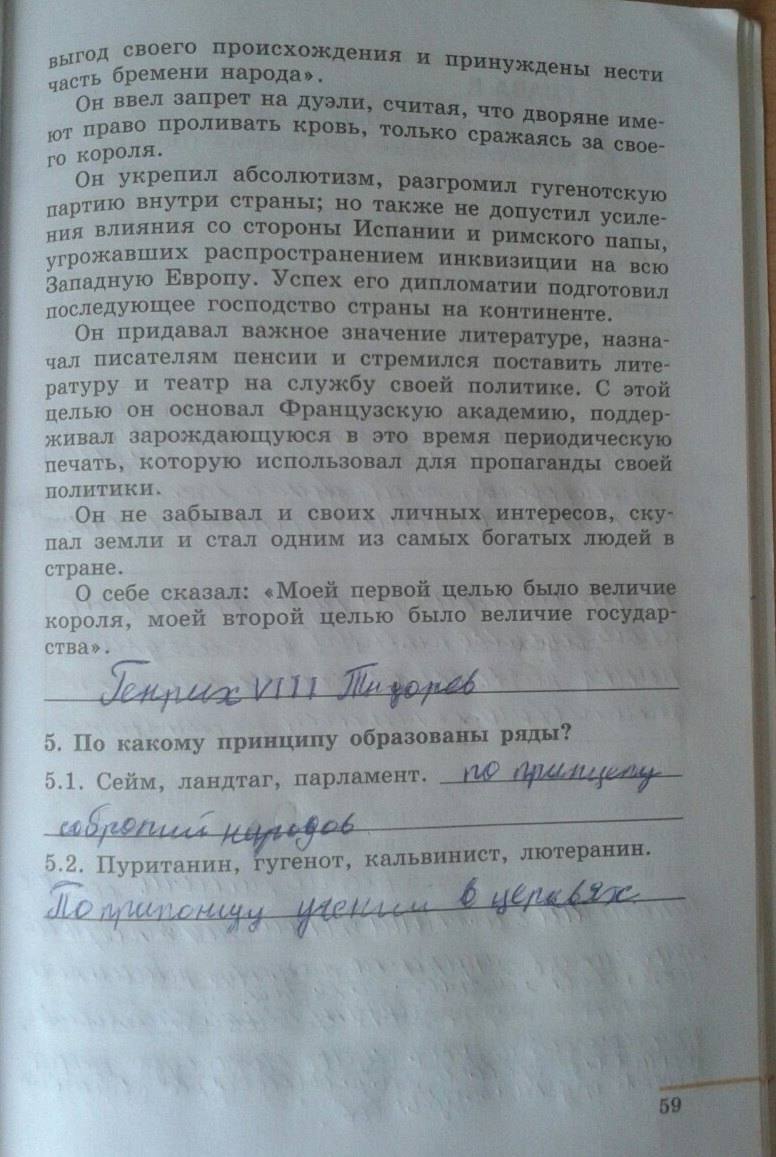 выгод своего происхождения и принуждены нести
часть бремени народа».
Он ввел запрет на дуэли, считая, что дворяне име-
ют право проливать кровь, только сражаясь за свое-
го короля.
Он укрепил абсолютизм, разгромил гугенотскую
партию внутри страны; но также не допустил усиле-
ния влияния со стороны Испании и римского папы,
угрожавших распространением инквизиции на всю
Западную Европу. Успех его дипломатии подготовил
последующее господство страны на континенте.
Он придавал важное значение литературе, назна-
чал писателям пенсии и стремился поставить лите-
ратуру и театр на службу своей политике. С этой
целью он основал Французскую академию, поддер-
живал зарождающуюся в это время периодическую
печать, которую использовал для пропаганды своей
политики.
Он не забывал и своих личных интересов, ску-
пал земли и стал одним из самых богатых людей в
стране.
О себе сказал: «Моей первой целью было величие
короля, моей второй целью было величие государ-
ства».
Генрих VIII Тюдоров
5. По какому принципу образованы ряды?
5.1. Сейм, ландтаг, парламент. по принципу
народов
5.2. Пуританин, гугенот, кальвинист, лютеранин.
По учений в церквях
59